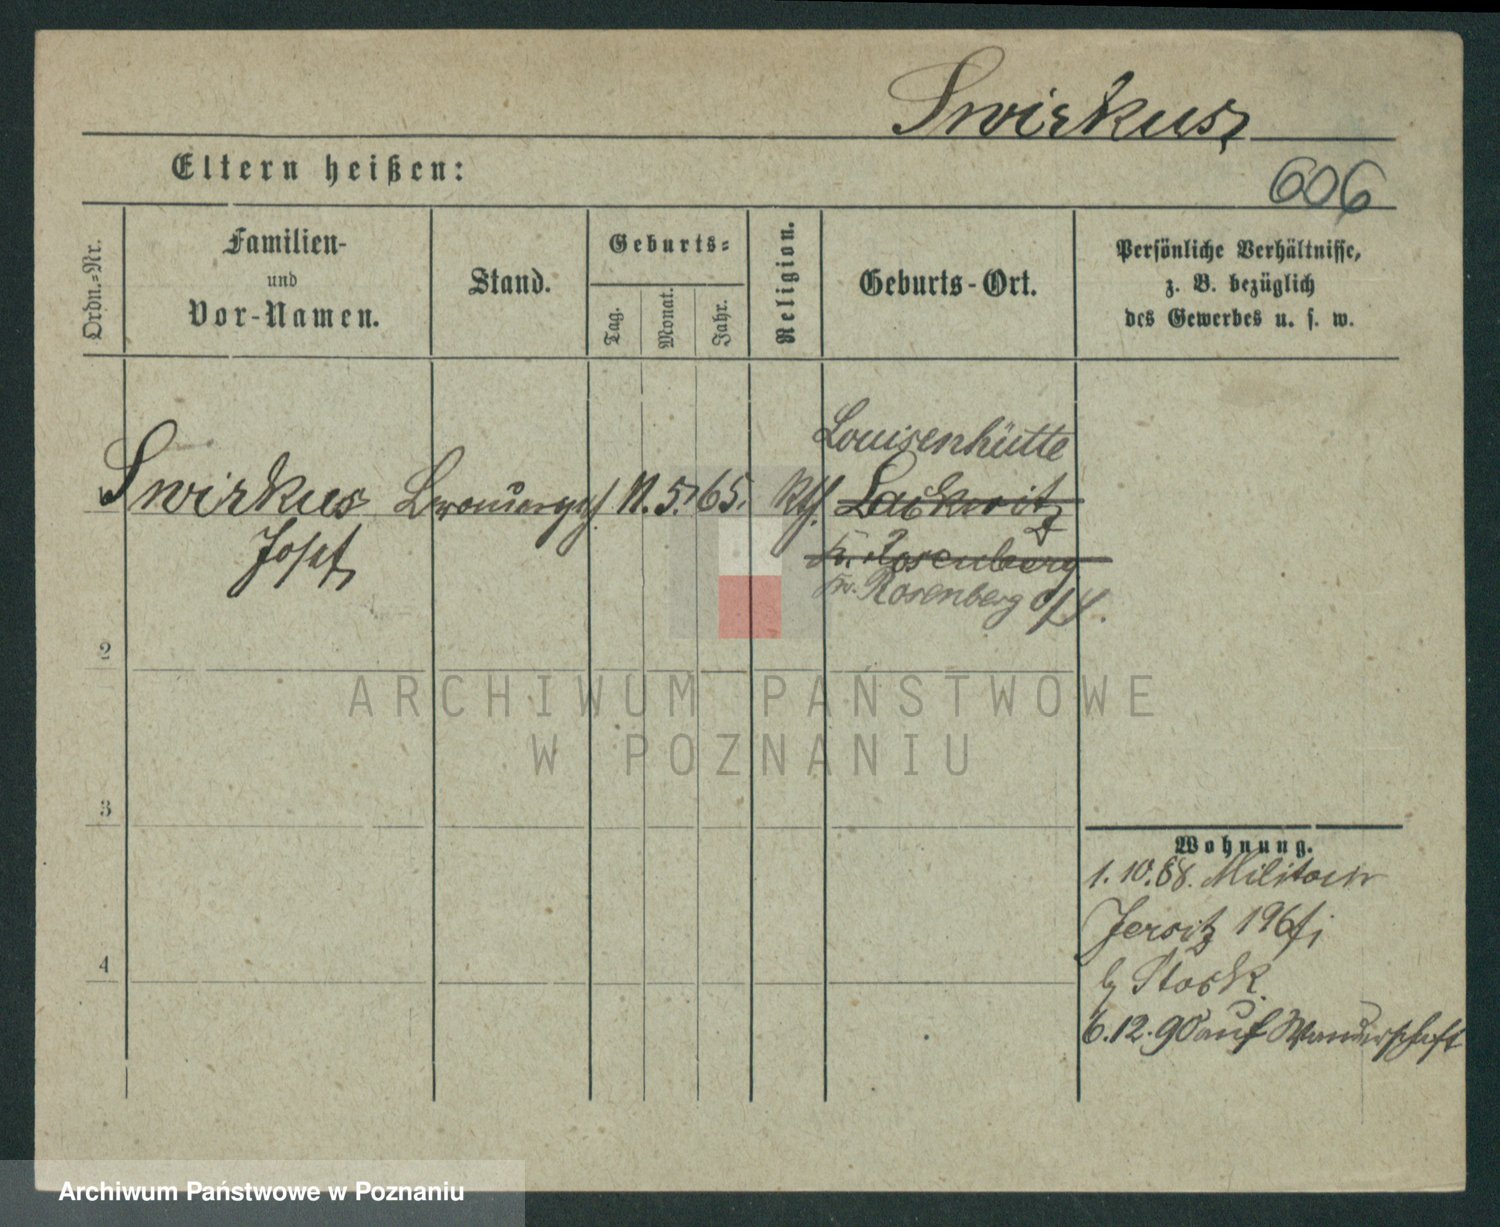 Swirkus
606
Eltern heißen:
Ordn.-Nr.
Familien-
und
Vor-Namen.
Stand.
Geburts-
Tag.
Monat.
Jahr.
Religion.
Geburts-Ort.
Persönliche Verhältnisse,
z. B. bezüglich
des Gewerbes u. s. w.
Louisenhütte
Swirkus 11. 5. 65. kth. Lackwitz
Josef
Kr. Rosenberg
Kr. Rosenberg o/S.
2
3
4
Wohnung.
1. 10. 88. Militair
Jersitz 196
b/ Stock.
6. 12. 90 auf Wanderschaft
ARCHIWUM PAŃSTWOWE
W POZNANIU
Archiwum Państwowe w Poznaniu